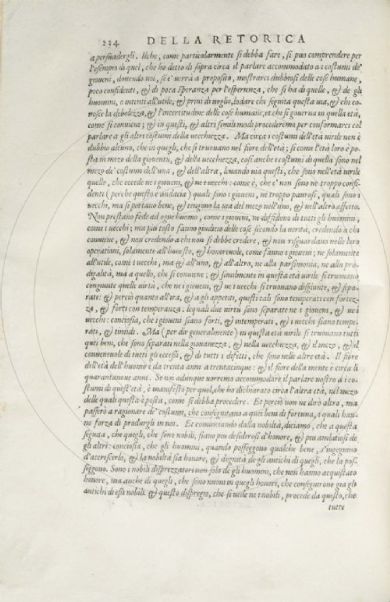 234 DELLA RETORICA
a persuadergli. Ilche, come particolarmente si debba fare, si può comprendere per
l'esempio di quei, che ho detto di sopra circa il parlare accommodato a i costumi de'
gioveni, dovendo noi, se verrà a proposito, mostrarci dubbiosi delle cose humane,
poco confidenti, & di poca speranza per l'esperenza, che si ha di quelle, & de gli
huomini, e intenti all'utile, & privi di
la debolezza, & l'incertitudine delle cose humane,
come si conviene; & in questi, & altri simili modi procederemo per conformarci col
parlare a gli altri costumi della vecchiezza. Ma circa i costumi dell'età virile non è
dubbio alcuno, che in quegli, che si truovano nel fiore dell'età; si come l'età loro è po-
sta in mezo della gioventù, & della vecchiezza, così anche i costumi di quella sono nel
mezo de' costumi dell'una, & dell'altra, levando via questi, che sono nell'età virile
quello, che eccede ne i gioveni, & ne i vecchi: come è, che e' non sono nè troppo confi-
denti (perche questo è audacia) quali sono i gioveni, nè troppo paurosi, quali sono i
vecchi, ma si portano bene, & tengono la via del mezo nell'uno, & nell'altro affetto.
Non prestano fede ad ogni huomo, come i gioveni, ne diffidano di tutti gli huomini,
come i vecchi; ma più tosto fanno giudicio delle cose secondo la verità, credendo à chi
conviene, & non credendo a chi non si debbe credere, & non risguardano nelle loro
operationi, solamente all'honesto, & honorevole, come fanno i gioveni; ne solamente
all'utile, come i vecchi, ma & all'uno, & all'altro, ne alla parsimonia, ne alla pro-
digalità, ma a quello, che si conviene; & finalmente in questa età virile si truovano
congiunte quelle virtù, che ne i gioveni, & ne i vecchi si truovano disgiunte, & sepa-
rate: & perciò quanto all'ira, & a gli appetiti, questi tali sono temperati con fortez-
za, & forti con temperanza: lequali due virtù sono separate ne i gioveni, & ne i
vecchi: conciosia, che i gioveni siano forti, & intemperati, & i vecchi siano tempe-
rati, & timidi. Ma (per dir generalmente) in questa età virile si truovano tutti
quei beni, che sono separati nella giovanezza, & nella vecchiezza, & il mezo, & il
convenevole di tutti gli eccessi, & di tutti i difetti, che sono nelle altre età. Il fiore
dell'età dell'huomo è da trenta anni a trentacinque: & il fiore della mente è circa li
quarantanove anni. Se noi adunque vorremo accommodare il parlare nostro a i co-
stumi di quest'età, è manifesto per quel, che ho dichiarato circa l'altre età, nel mezo
delle quali questa è posta, come si debba procedere. Et perciò non ne dirò altro, ma
passerò a ragionare de' costumi, che conseguitano a quei beni di fortuna, i quali han-
no forza di produrgli in noi. Et cominciando dalla nobiltà, diciamo, che a questa
seguita, che quegli, che sono nobili, siano più desiderosi d'honore, & più
de gli altri: conciosia, che gli huomini, quando posseggono qualche bene, s'ingegnino
d'accrescerlo, & la nobiltà sia honore, & dignità de gli antichi di quegli, che la pos-
seggono. Sono i nobili disprezzatori non solo de gli huomini, che non hanno acquistato
honore, ma anche di quegli, che sono
antichi di essi nobili. & questo dispregio, che si vede ne i nobili, procede da questo, che
tutte